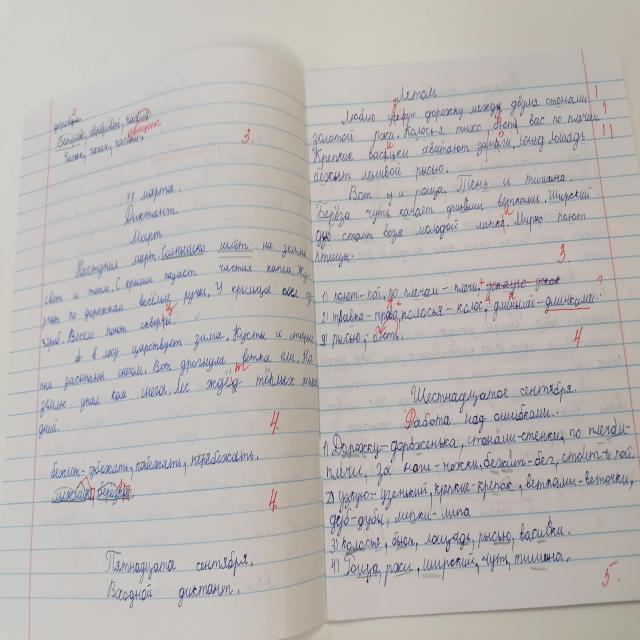 3.
11 марта.
Диктант.
Март
Наступил март. Солнышко шлёт на землю
свет и тепло. С крыши падает частая капель. Жур-
чат по дорожкам весёлые ручьи. У крыльца
Весело поют скворцы.
А в лесу царствует зима. Кусты и старые
пни засыпаны снегом. Вот дрогнула ветка ели. На
землю упал ком снега. Лес ждёт тёплых
дней.
4.
бежит-убежать, побежать, перебежать.
4.
Пятнадцатое сентября.
Входной диктант.
Летом
Люблю узкую дорожку между двумя стенами
золотой ржи. Колосья тихо бьют вас по плечам
Крепкие васильки хватают за ноги. Лошадь
бежит ленивой рысью.
Вот и роща. Тень и тишина.
Берёза чуть качает длинными ветками. Широкий
дуб стоит возле молодой липки. Мирно поют
птицы.
3
1) поют-пой, по плечам-плечи,
2) травка-трава, колосья-колос, длинный-
3) рысью, бьют.
4
Шестнадцатое сентября.
Работа над ошибками.
1) Дорожку-дороженька, стенами-стенки, по плечам-
плечи, за ноги-ножки, бежит-бег, стоит-стой,
2) узкую-узенький, крепкие-крепок, ветками-веточки,
дуб-дубы, липки-липа
3) колосья, бьют, лошадь, рысью, васильки.
4) Роща, ржи, широкий, чуть, тишина.
5.